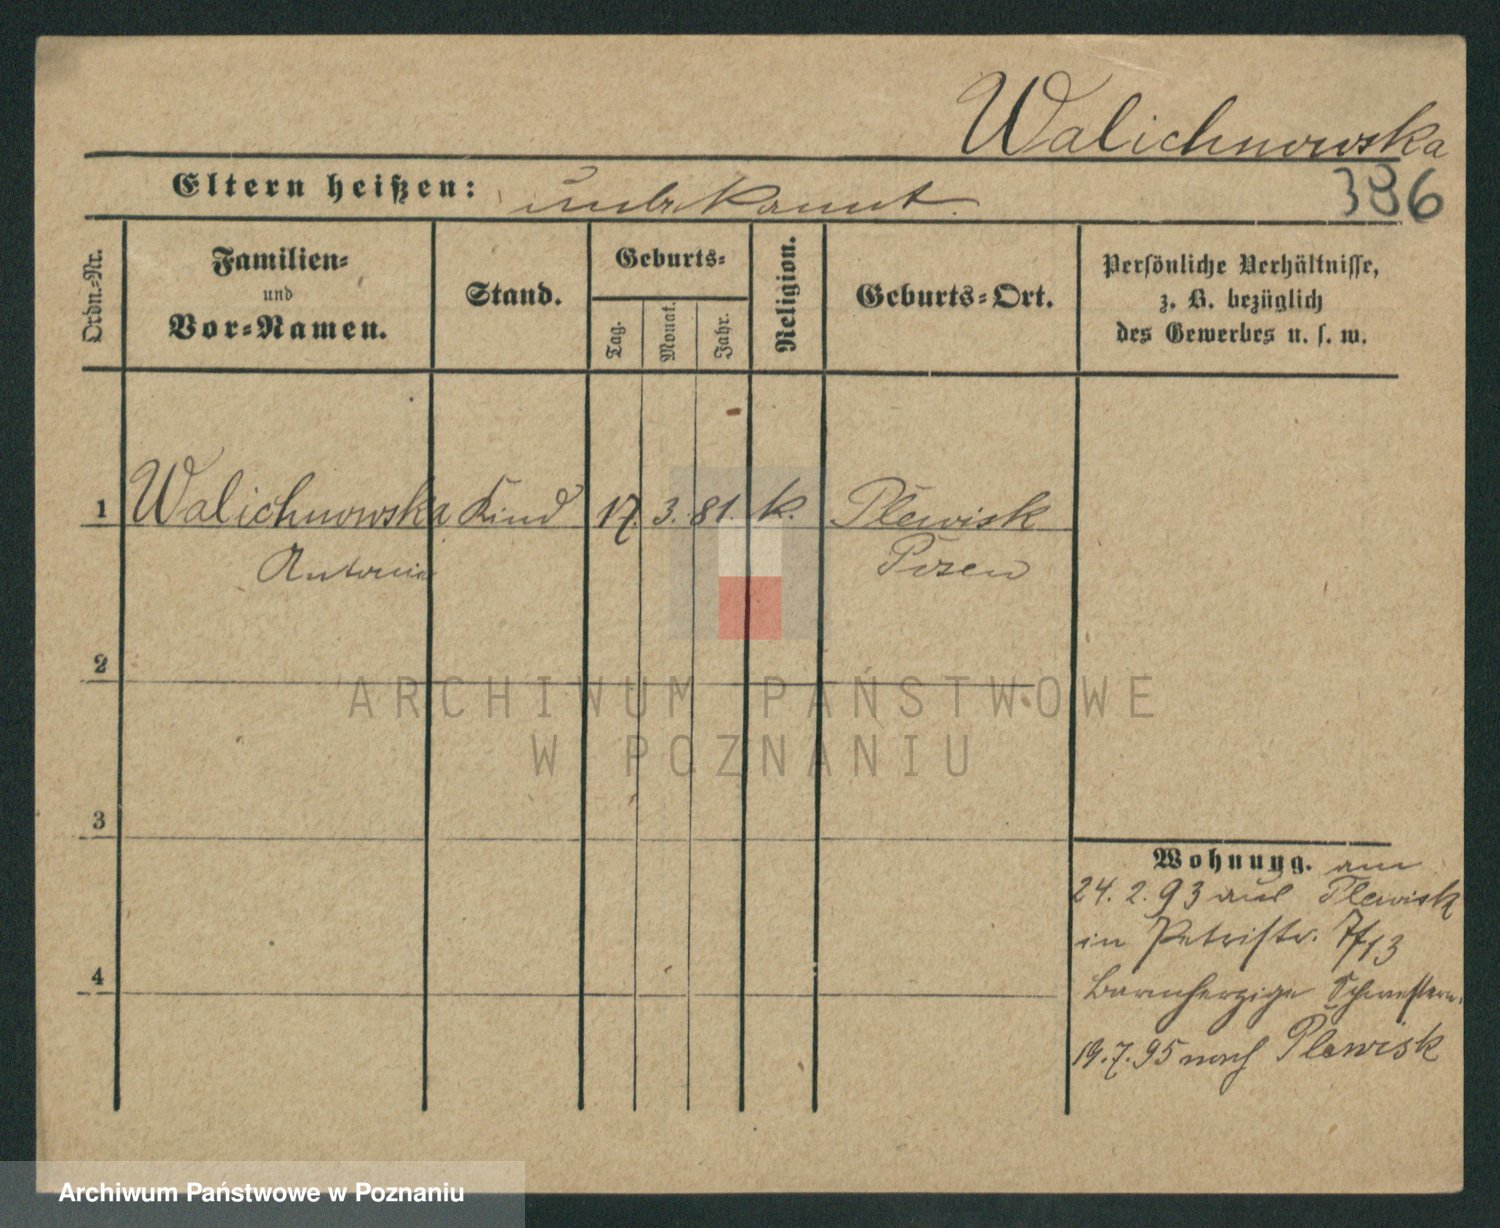 Walichnowska
386
Eltern heißen: unbekannt.
Ordn.-Nr.
Familien-
und
Vor-Namen.
Stand.
Geburts-
Tag.
Monat.
Jahr.
Religion.
Geburts-Ort.
Persönliche Verhältnisse,
z. B. bezüglich
des Gewerbes u. s. w.
1 Walichnowska Kind 17. 3. 81. k. Plewisk
Antonie Posen
2
3
4
Wohnung. am
24. 2. 93 aus Plewisk
in Petristr. 7/13
Barmherzige Schwestern.
19. 7. 95 nach Plewisk
ARCHIWUM PAŃSTWOWE
W POZNANIU
Archiwum Państwowe w Poznaniu